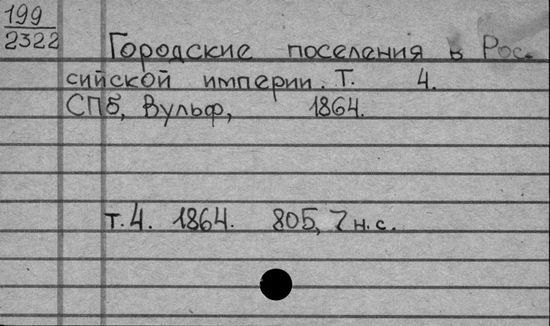 199
2322
Городские поселения в Рос-
сийской империи. Т. 4.
СПб, Вульф, 1864.
т. 4. 1864. 805, 7 н.с.